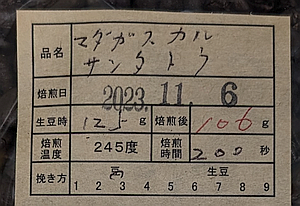 品名 マダガスカル
サンタトウ
焙煎日 2023. 11. 6
生豆時 125 g 焙煎後 106 g
焙煎温度 245度 焙煎時間 200 秒
挽き方 豆 生豆
1 2 3 4 5 6 7 8 9